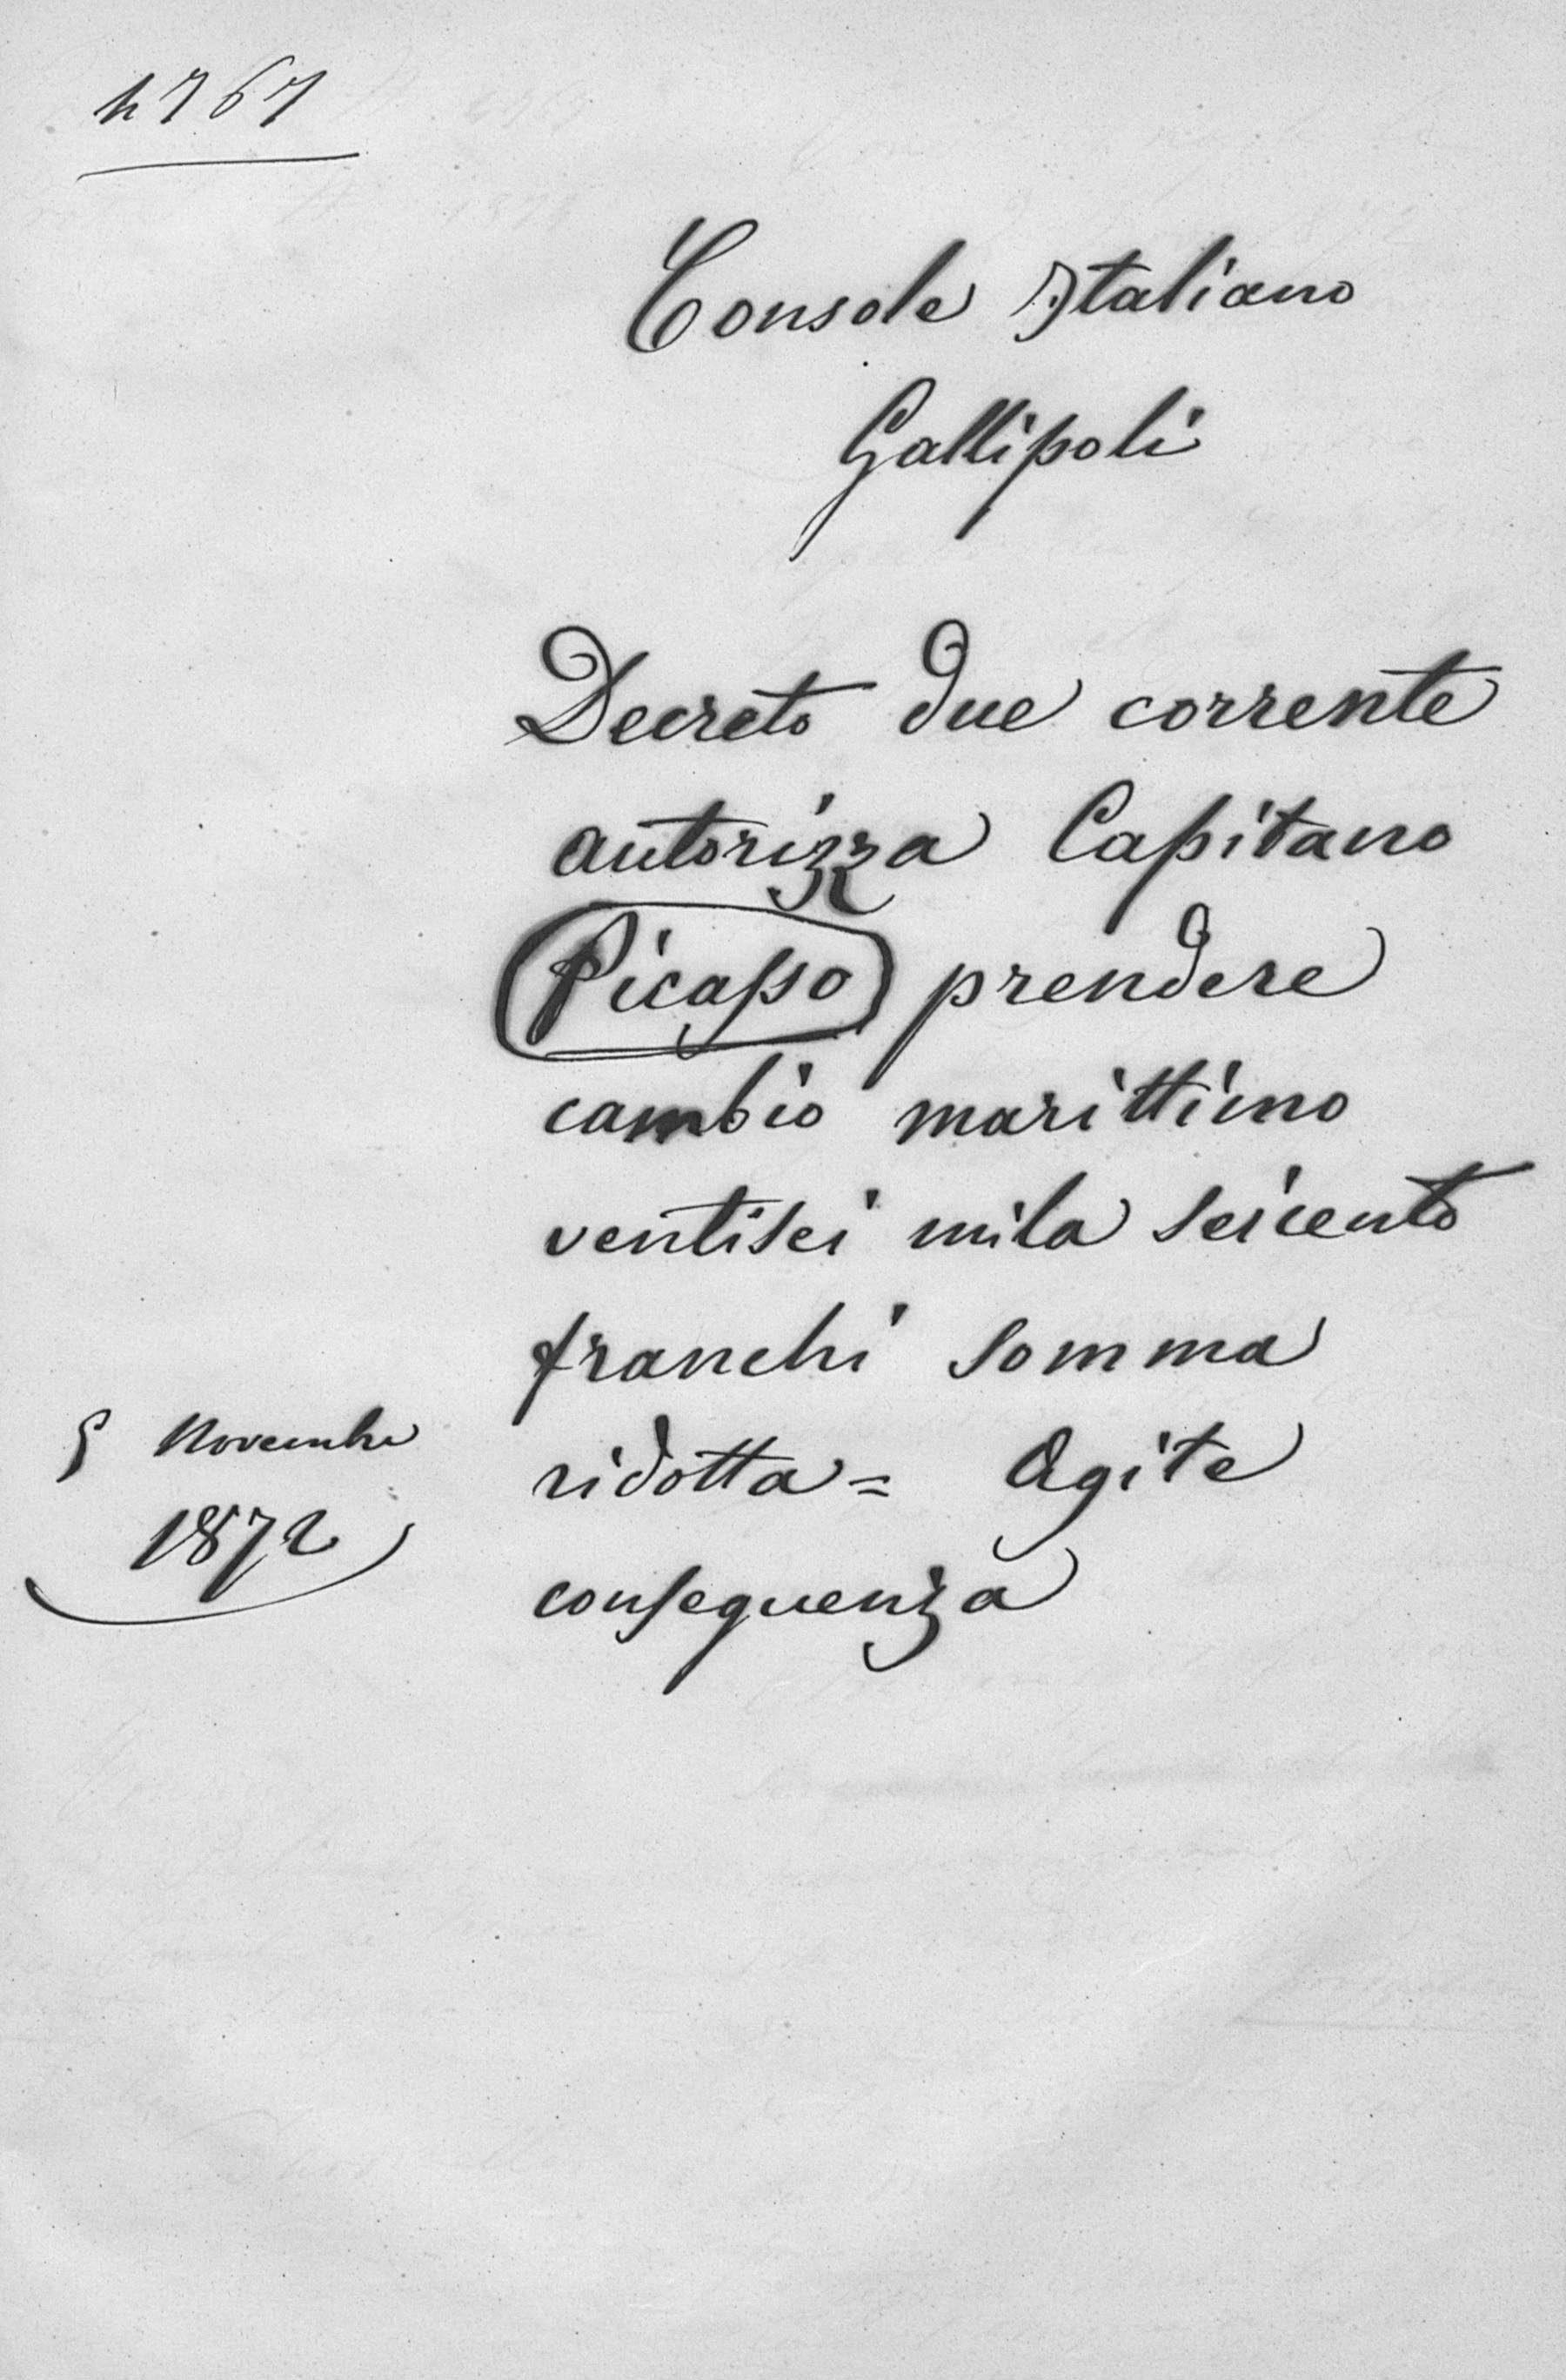 4767
Console Italiano
Gallipoli
Decreto due corrente
autorizza Capitano
Picasso prendere
cambio marittimo
ventisei mila seicento
franchi somma
ridotta = Agite
conseguenza
5 Novembre
1872